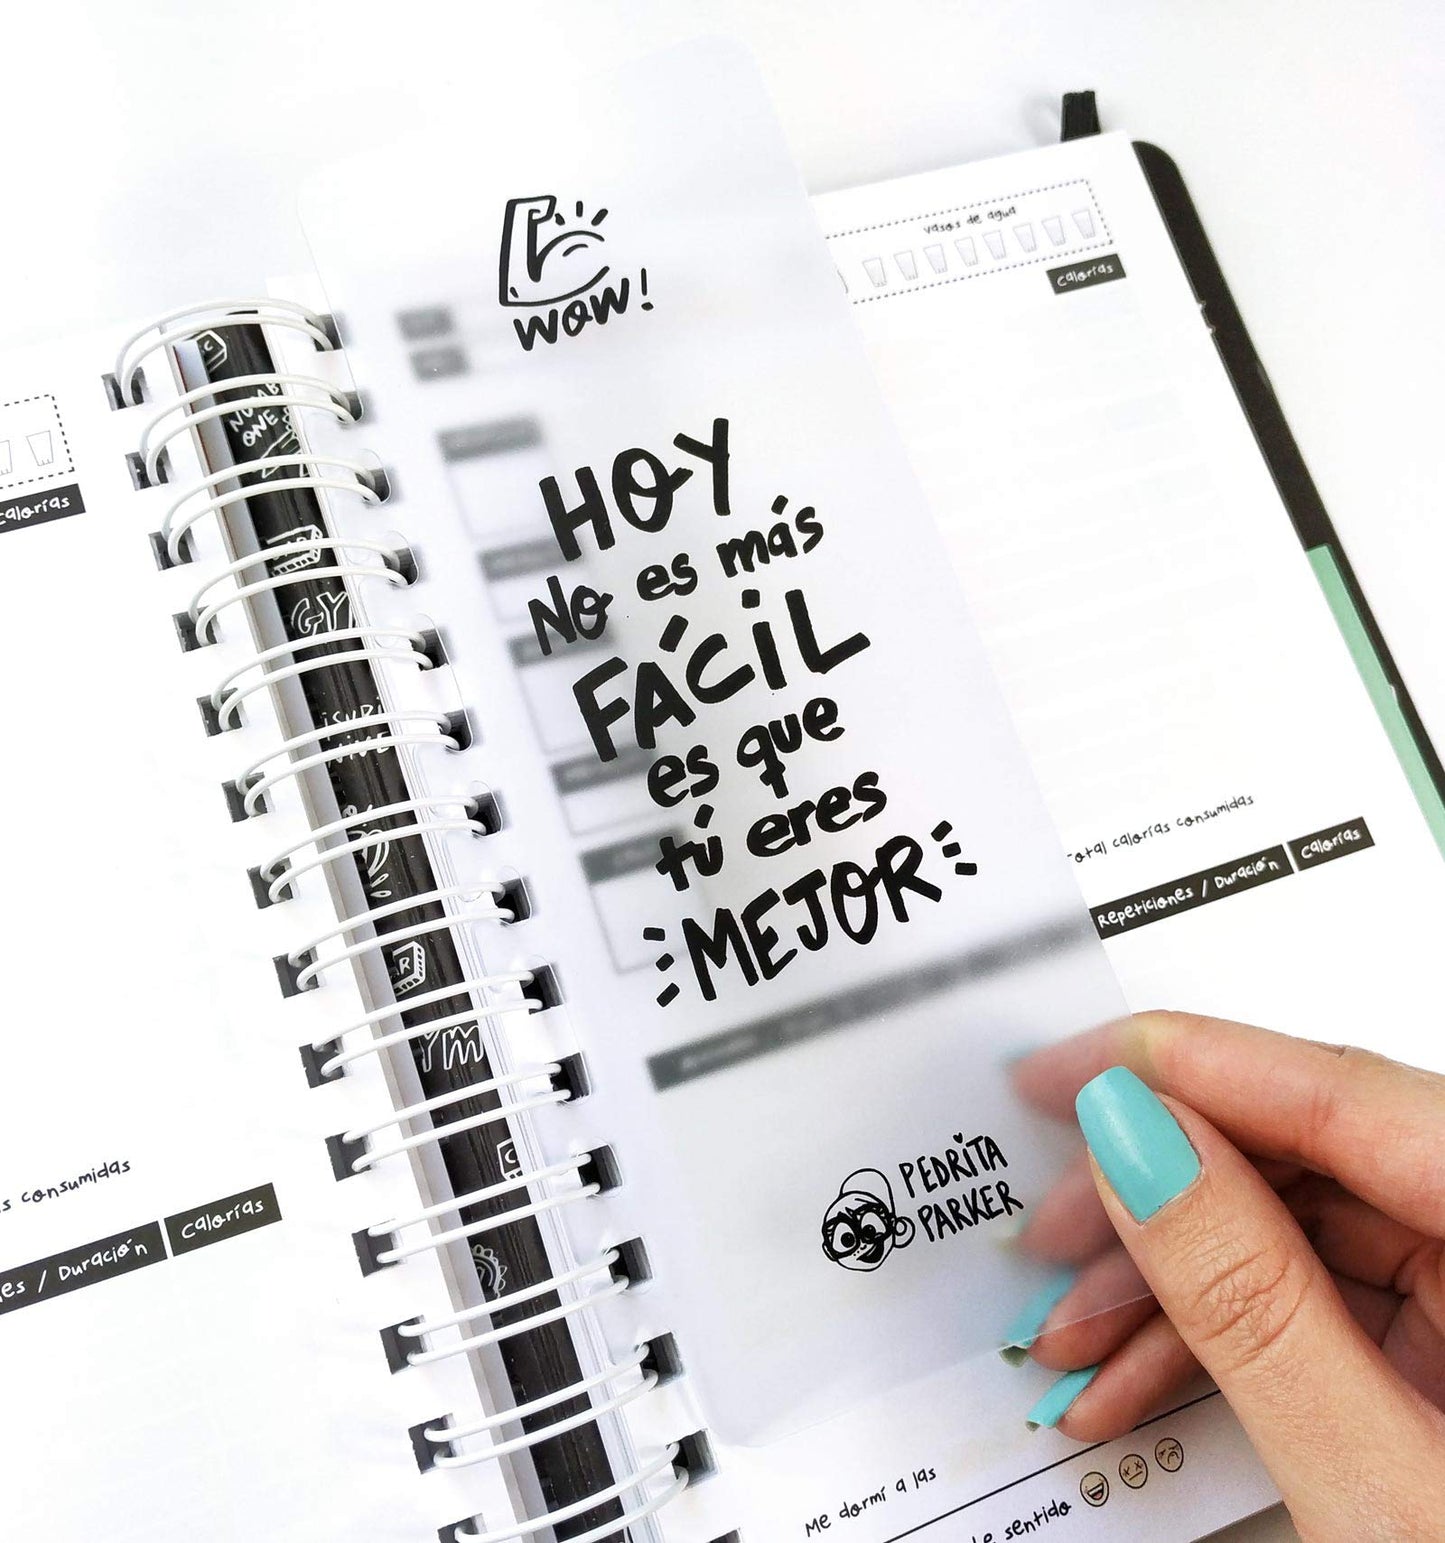 wow!
HOY
NO es más
FÁCIL
es que
tú eres
MEJOR
PEDRITA
PARKER
vasos de agua
calorías
Total calorías consumidas
Repeticiones / Duración
calorías
Me dormí a las
sentido
calorías
consumidas
/ Duración
calorías
C
NUMBER
ONE
GYM